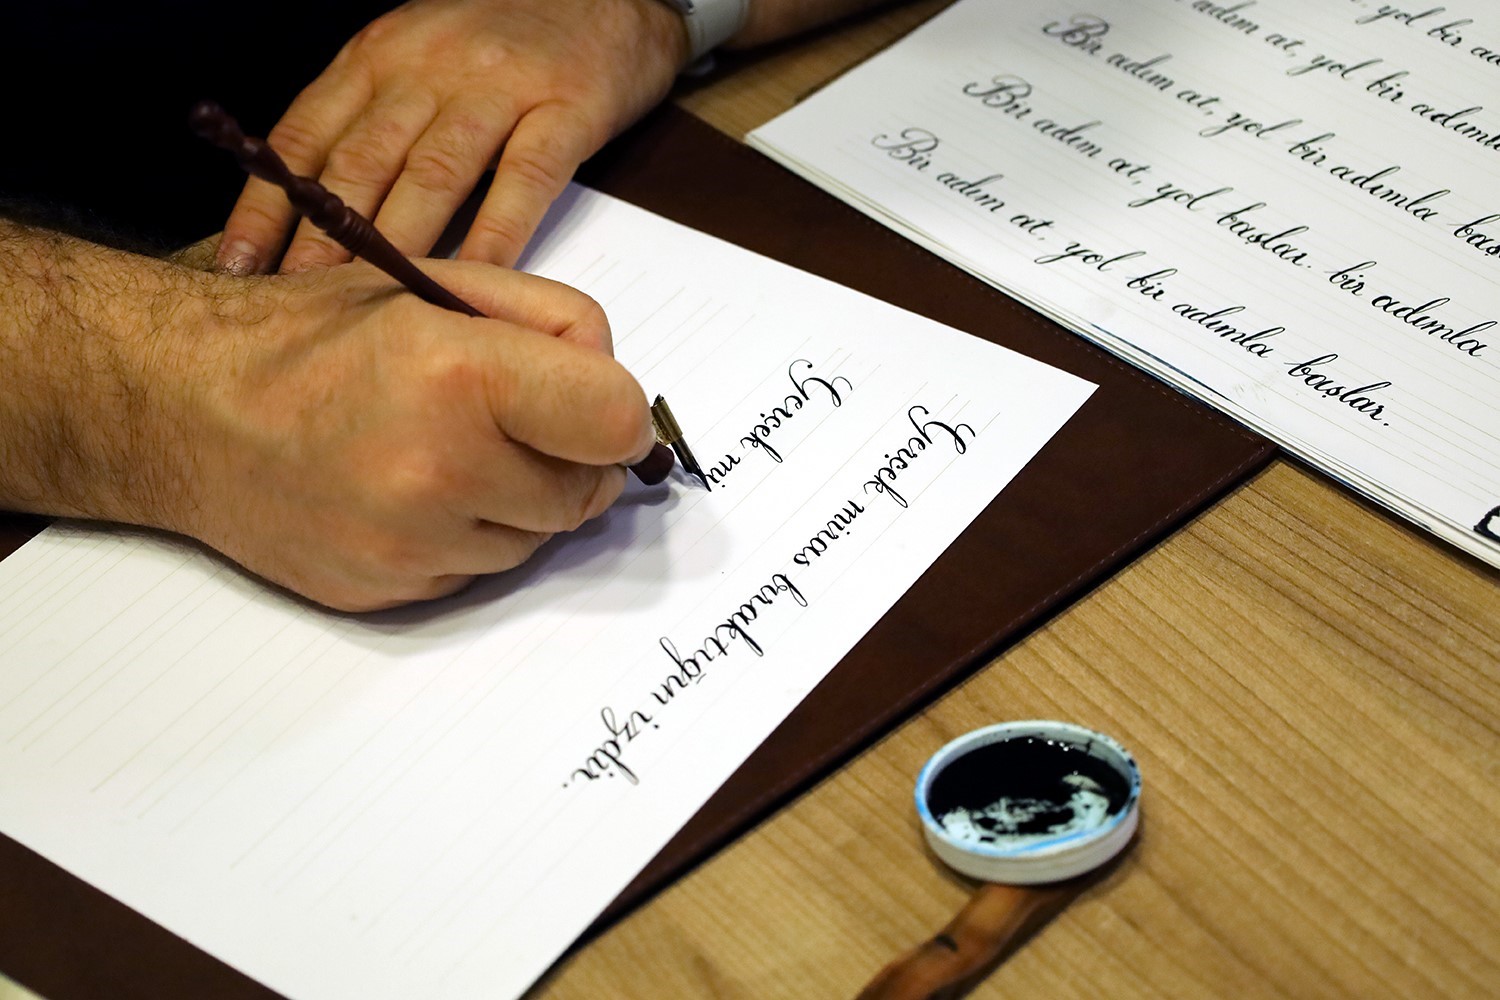 yol bir
adım at, yol bir adımla
Bir adım at, yol bir adımla baş
Bir adım at, yol başlar. bir adımla
Bir adım at, yol bir adımla başlar.
Gerçek miras bıraktığın izdir.
Gerçek mi